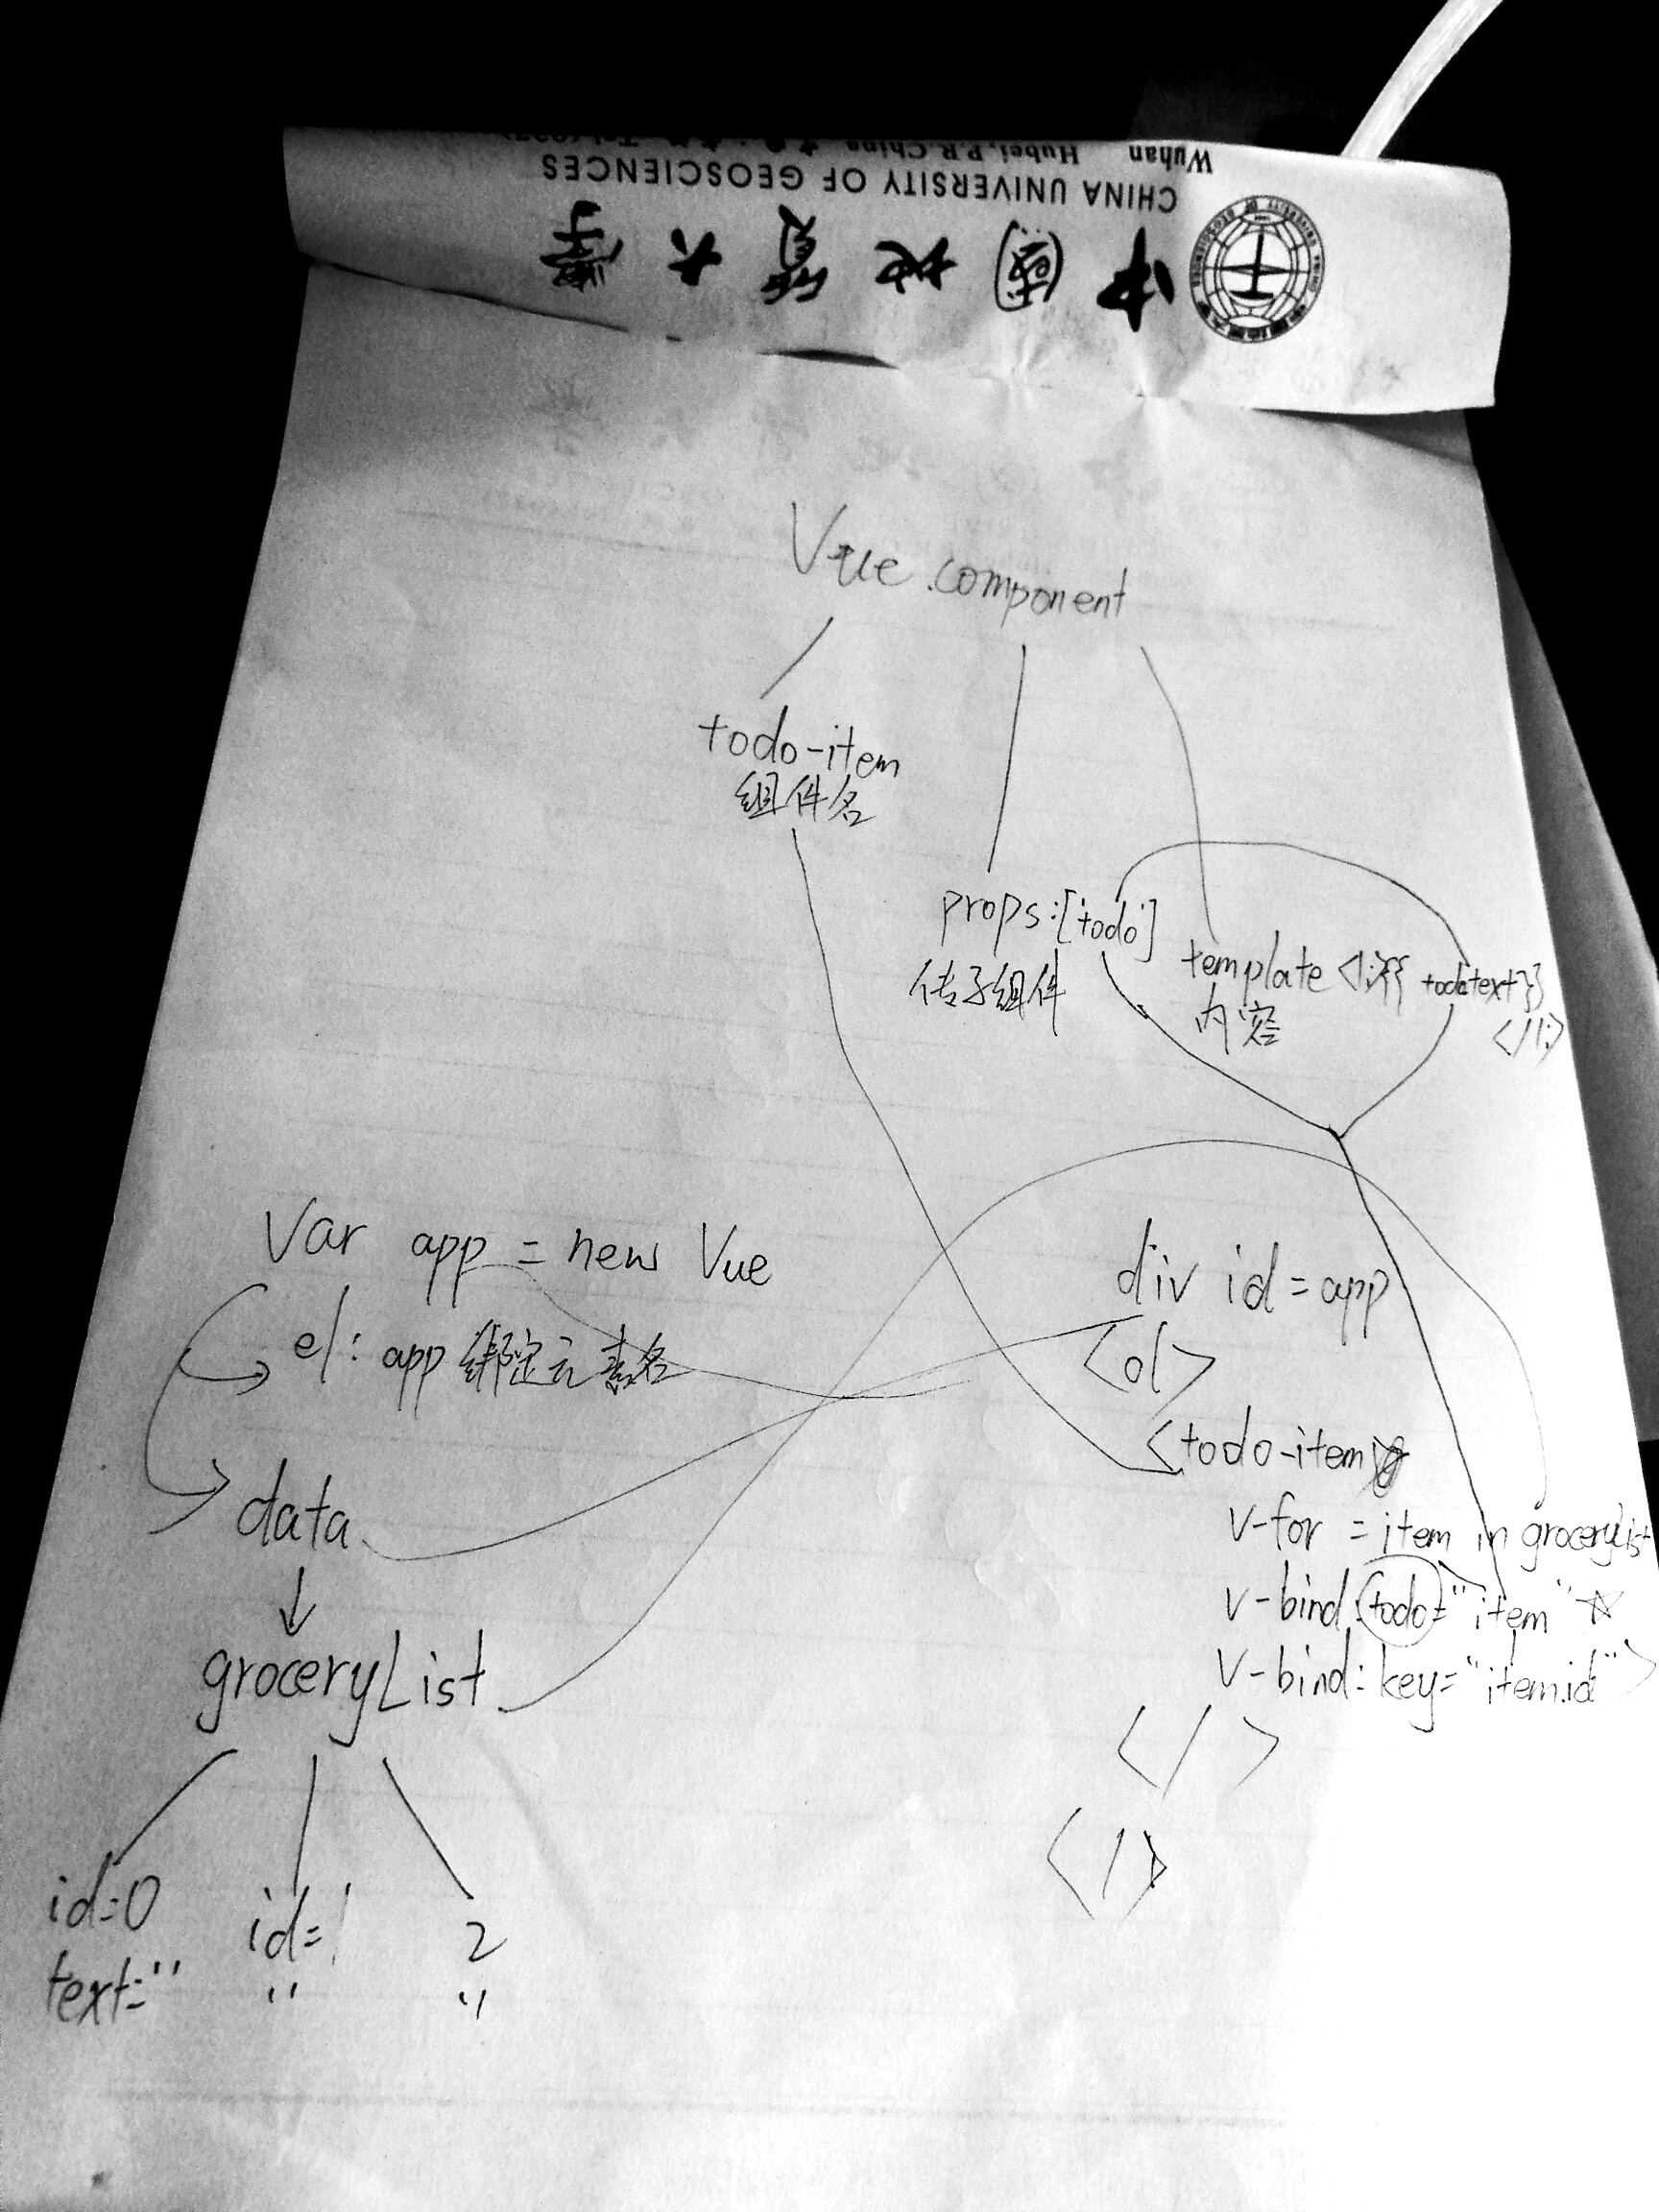 Wuhan Hubei, P.R.China
CHINA UNIVERSITY OF GEOSCIENCES
中国地质大学
Vue.component
todo-item
组件名
props:['todo']
传子组件
template <li>{{ todo.text}}
</li>
内容
Var app = new Vue
el: app 绑定元素名
data
groceryList
id=0
text=''
id=1
''
2
''
div id=app
<ol>
<todo-item
v-for = item in groceryList
v-bind:todo="item" ☆
v-bind:key="item.id">
</ >
</>